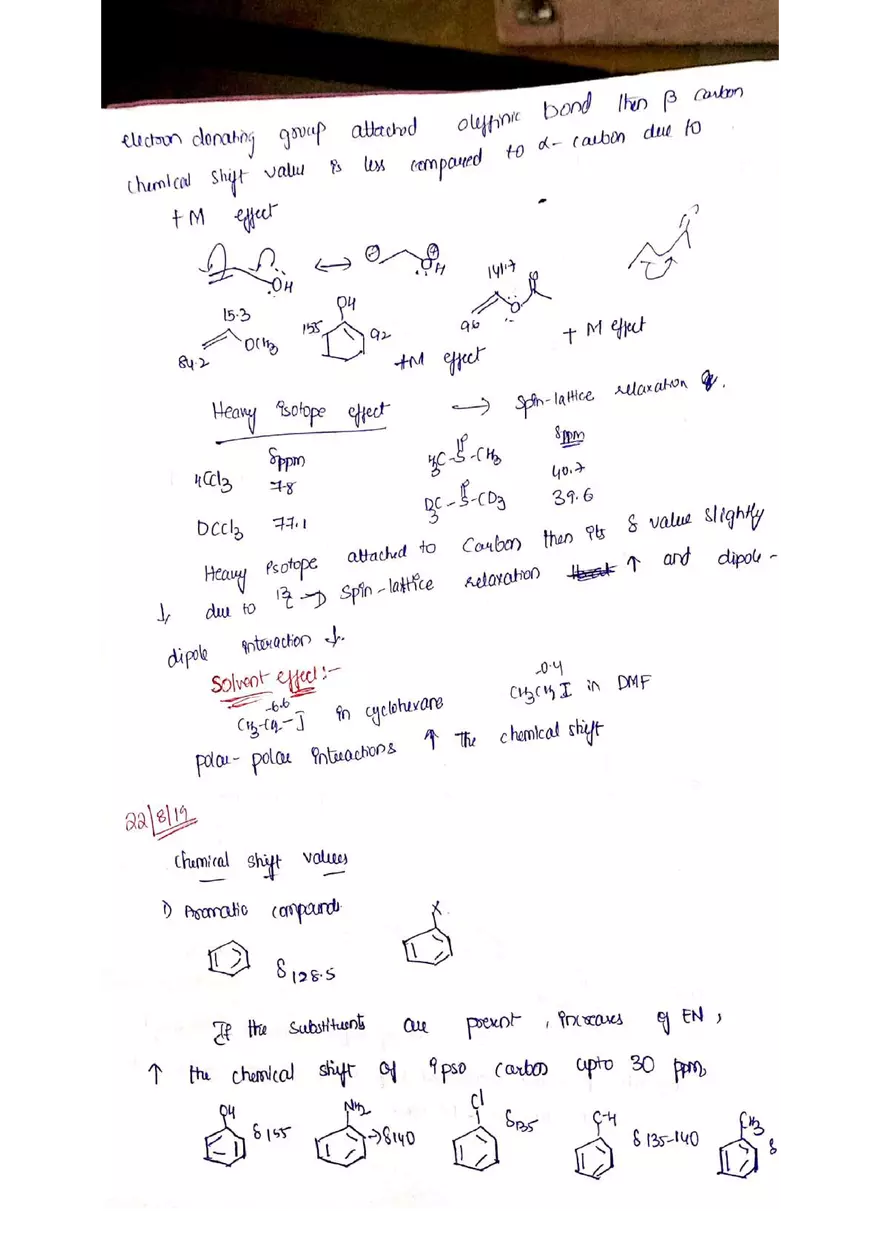 electron donating group attached oleffinic bond then β carbon
chemical shift value is less compared to α-carbon due to
+M effect
OH ↔ ⊖ ⊕ OH
15.3 OH 141.7
84.2 OCH3 155 92 96
+M effect + M effect
Heavy isotope effect → Spin-lattice relaxation
δppm δppm
HCCl3 7.8 H3C-S-CH3 40.7
DCCl3 77.1 D3C-S-CD3 39.6
Heavy isotope attached to Carbon then its δ value slightly
↓ due to 13C → Spin-lattice relaxation ↑ and dipole-
dipole interaction ↓.
Solvent effect:-
-6.6 -0.4
CH3-CH2-I in cyclohexane CH3CH2I in DMF
polar-polar interactions ↑ the chemical shift
22/8/19
Chemical shift values
1) Aromatic compounds X
δ128.5
If the substituents are present, increases of EN,
↑ the chemical shift of ipso carbon upto 30 ppm,
OH δ155 NH2 →δ140 Cl δ135 C-H δ 135-140 CH3 δ